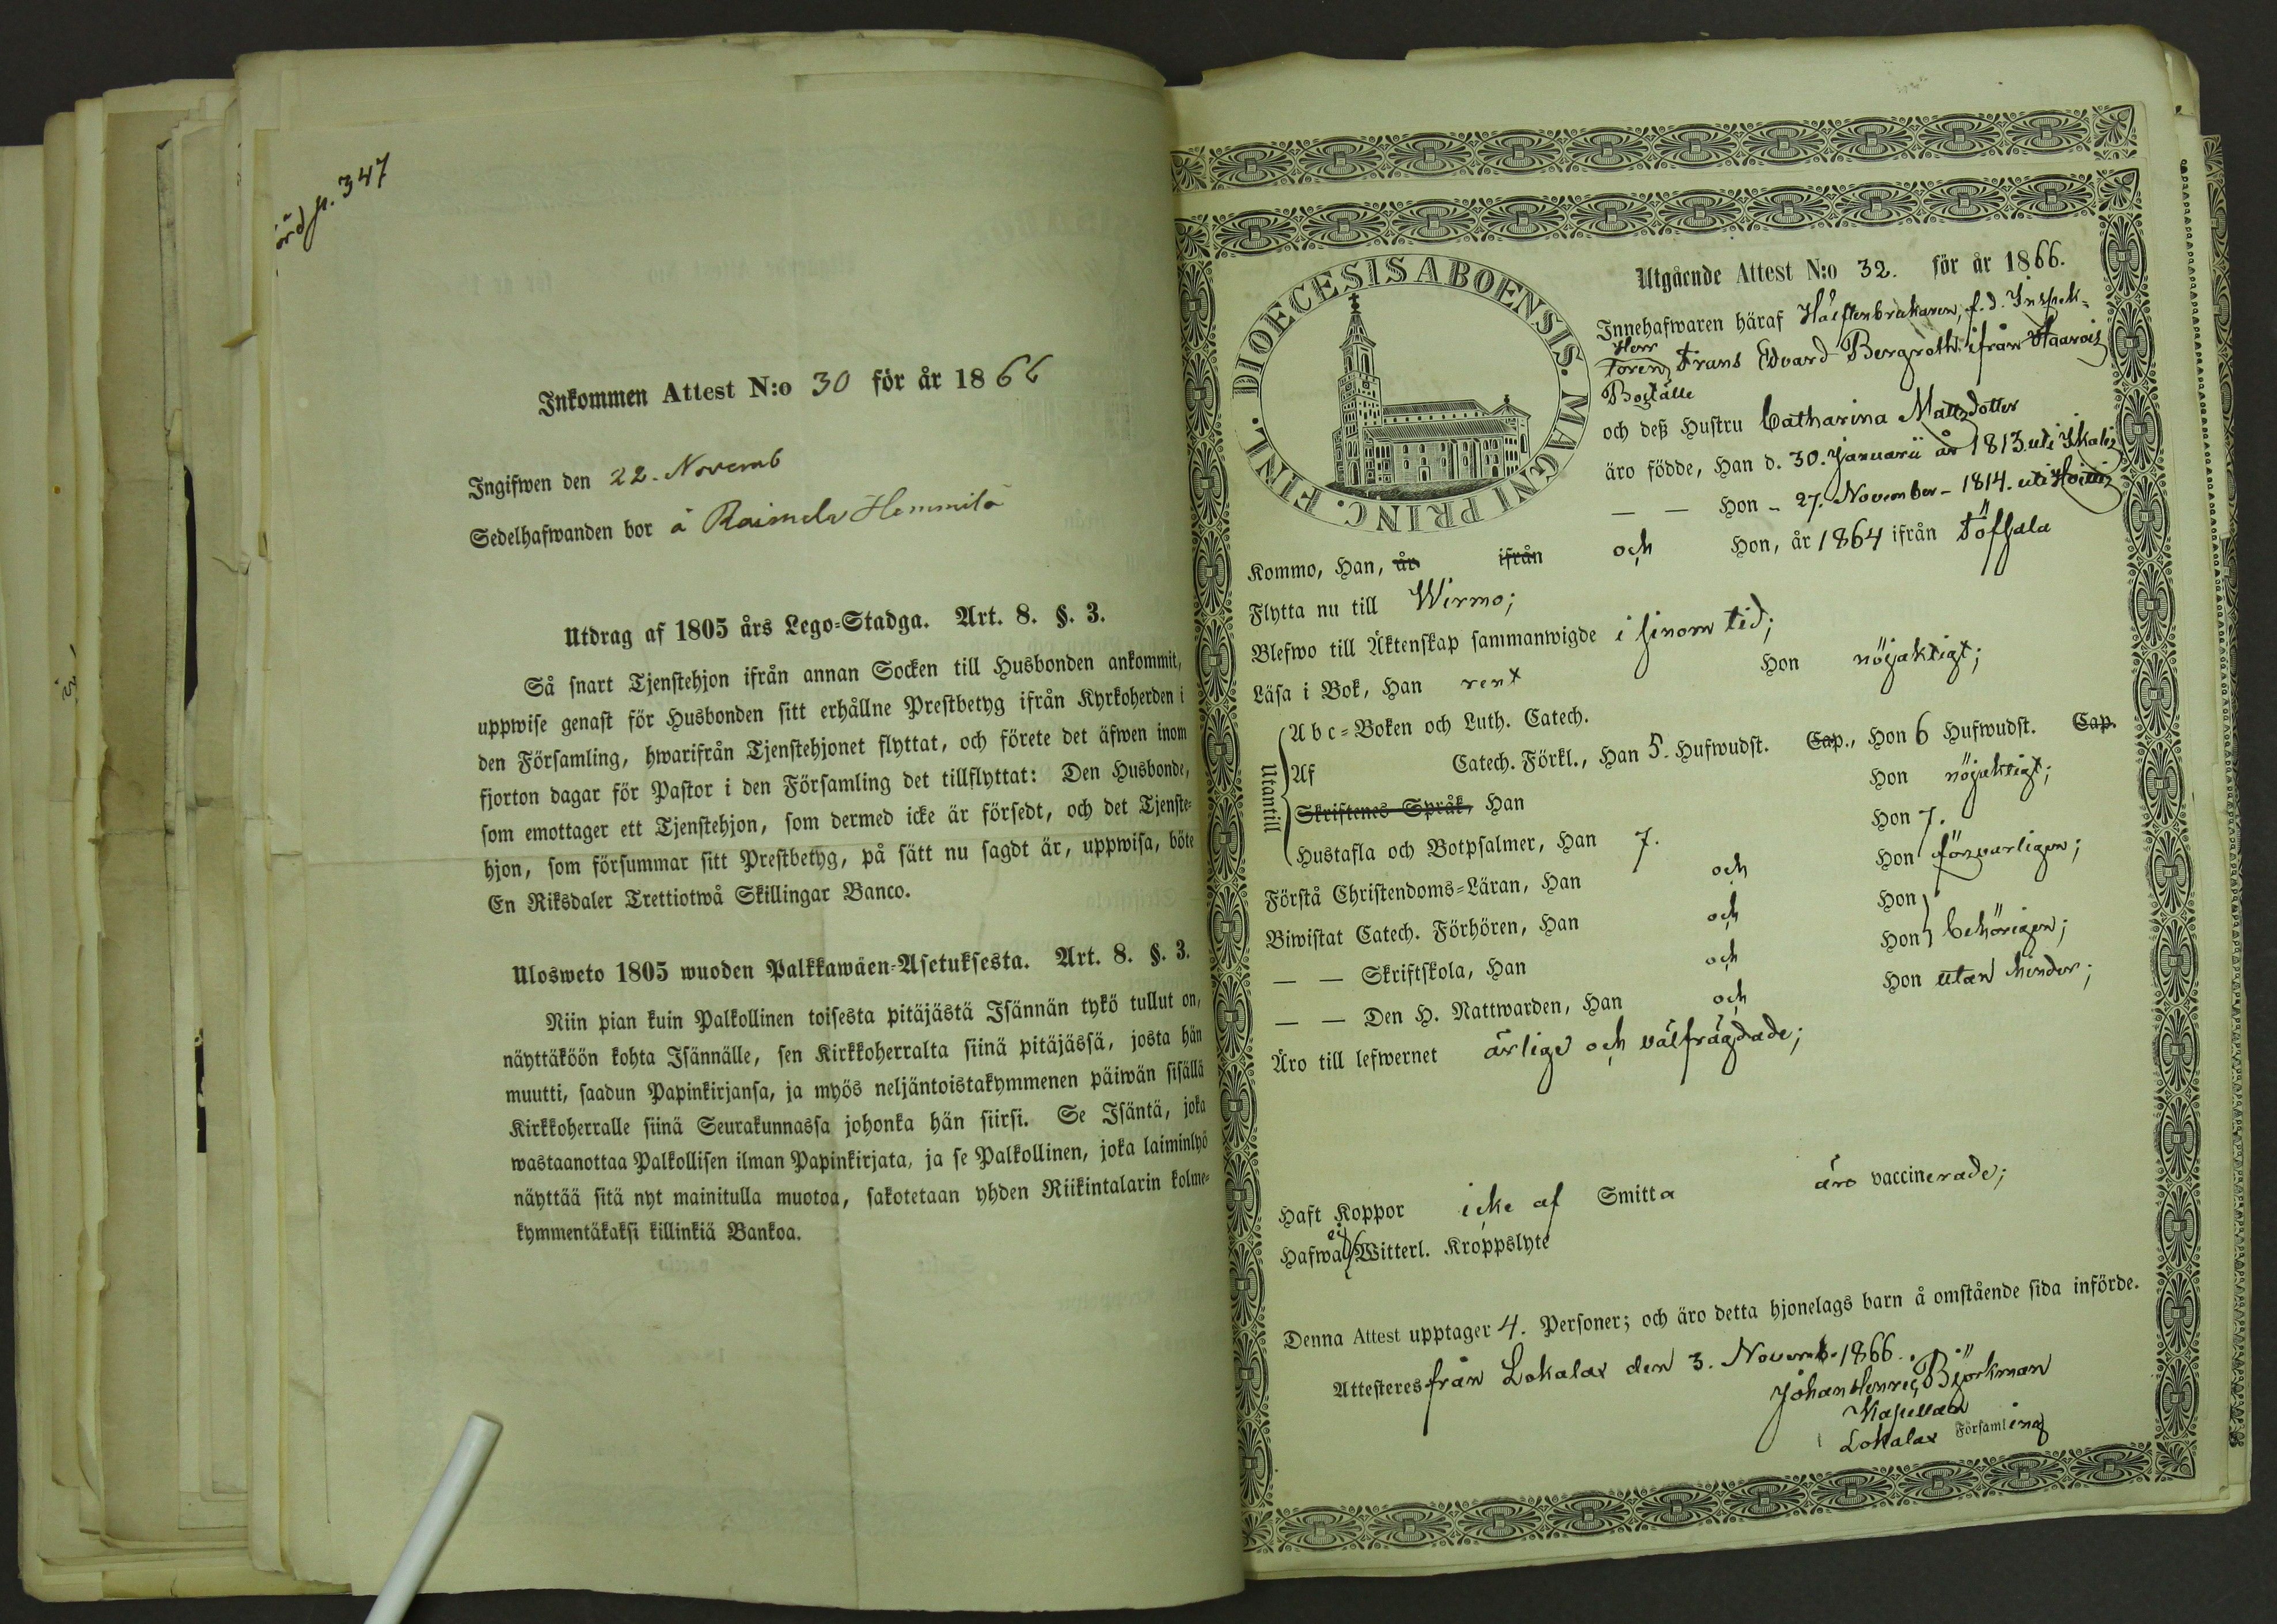 förd p. 347
Inkommen Attest N:o 30 för år 1866
Ingifwen den 22. Novemb
Sedelhafwanden bor å Raimela Hemmilä
Utdrag af 1805 års Lego-Stadga. Art. 8. §. 3.
Så snart Tjenstehjon ifrån annan Socken till Husbonden ankommit,
uppwise genast för Husbonden sitt erhållne Prestbetyg ifrån Kyrkoherden i
den Församling, hwarifrån Tjenstehjonet flyttat, och förete det äfwen inom
fjorton dagar för Pastor i den Församling det tillflyttat: Den Husbonde,
som emottager ett Tjenstehjon, som dermed icke är försedt, och det Tjenste-
hjon, som försummar sitt Prestbetyg, på sätt nu sagdt är, uppwisa, böte
En Riksdaler Trettiotwå Skillingar Banco.
Ulosweto 1805 wuoden Palkkawäen-Asetuksesta. Art. 8. §. 3.
Niin pian kuin Palkollinen toisesta pitäjästä Isännän tykö tullut on,
näyttäköön kohta Isännälle, sen Kirkkoherralta siinä pitäjässä, josta hän
muutti, saadun Papinkirjansa, ja myös neljäntoistakymmenen päiwän sisällä
Kirkkoherralle siinä Seurakunnassa johonka hän siirsi. Se Isäntä, joka
wastaanottaa Palkollisen ilman Papinkirjata, ja se Palkollinen, joka laiminlyö
näyttää sitä nyt mainitulla muotoa, sakotetaan yhden Riikintalarin kolme-
kymmentäkaksi killinkiä Bankoa.
DIOECESIS ABOENSIS. MAGNI PRINC. FINL.
Utgående Attest N:o 32. för år 1866.
Innehafwaren häraf Hälftenbrukaren, f.d. Inspek-
Herr
toren Frans Edvard Bergroth ifrån Haarois
Boställe
och deß Hustru Catharina Mattsdotter
äro födde, Han d. 30. Januarii år 1813 uti Ikalis
— — Hon - 27. November - 1814. uti Hvittis
Kommo, Han, år ifrån och Hon, år 1864 ifrån Töffsala
Flytta nu till Wirmo;
Blefwo till Äktenskap sammanwigde i sinom tid;
Läsa i Bok, Han rent Hon nöjaktigt;
Utantill
Abc-Boken och Luth. Catech.
Af Catech. Förkl., Han 5. Hufwudst. Cap., Hon 6 Hufwudst. Cap.
Skriftenes Språk, Han Hon nöjaktigt;
Hustafla och Botpsalmer, Han 7. Hon 7.
Förstå Christendoms-Läran, Han och Hon försvarligen;
Biwistat Catech. Förhören, Han och Hon
— — Skriftskola, Han och Hon behörigen;
— — Den H. Nattwarden, Han och Hon utan hinder;
Äro till lefwernet ärlige och välfrägdade;
Haft Koppor icke af Smitta äro vaccinerade;
ej
Hafwa Witterl. Kroppslyte
Denna Attest upptager 4. Personer; och äro detta hjonelags barn å omstående sida införde.
Attesteres från Lokalax den 3. Novemb. 1866.
Johan Henric Björkman
Kapellan
i Lokalax Församling